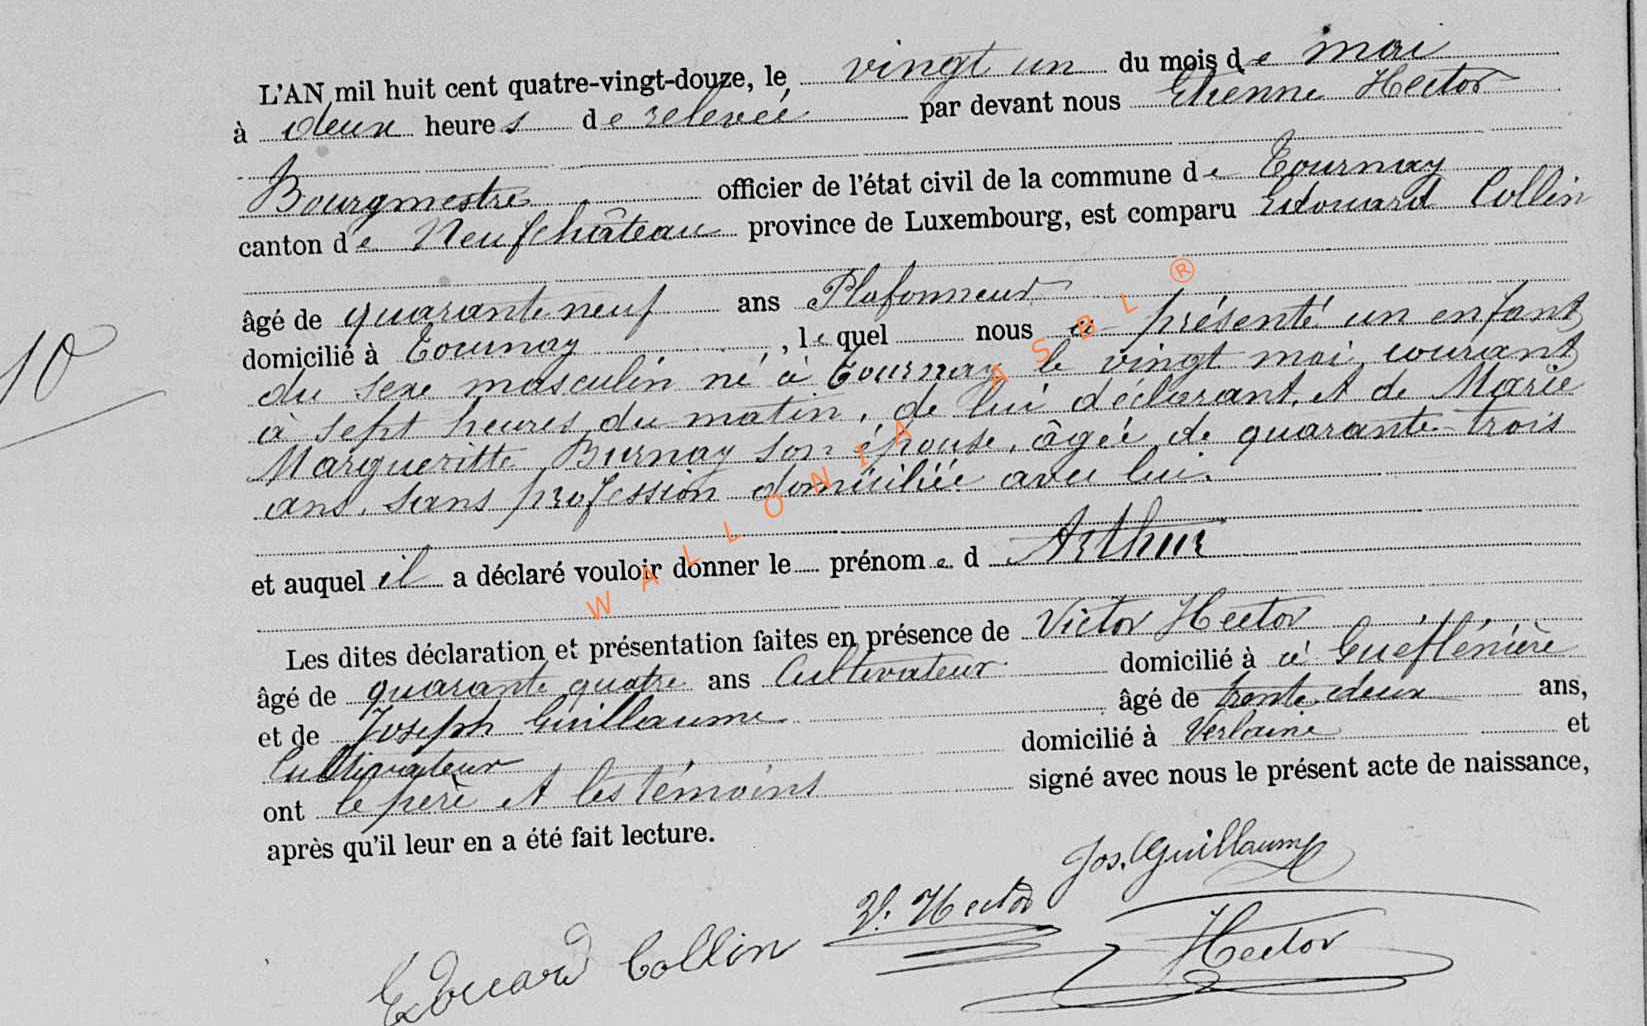 L'AN mil huit cent quatre-vingt-douze, le vingt un du mois de mai
à deux heures de relevée par devant nous Etienne Hector
Bourgmestre officier de l'état civil de la commune de Tournay
canton de Neufchâteau province de Luxembourg, est comparu Edouard Collin
âgé de quarante neuf ans Plafonneur
domicilié à Tournay, le quel nous a présenté un enfant
du sexe masculin né à Tournay le vingt mai courant
à sept heures du matin, de lui déclarant, et de Marie
Margueritte Burnay son épouse, âgée de quarante-trois
ans, sans profession domiciliée avec lui.
et auquel il a déclaré vouloir donner le prénom e d Arthur
Les dites déclaration et présentation faites en présence de Victor Hector
âgé de quarante quatre ans Cultivateur domicilié à à
et de Joseph Guillaume âgé de trente deux ans,
Cultivateur domicilié à Verlaine et
ont le père et les témoins signé avec nous le présent acte de naissance,
après qu'il leur en a été fait lecture.
Jos. Guillaume
V. Hector
Hector
Edouard Collin
10
WALLONIA ASBL ®